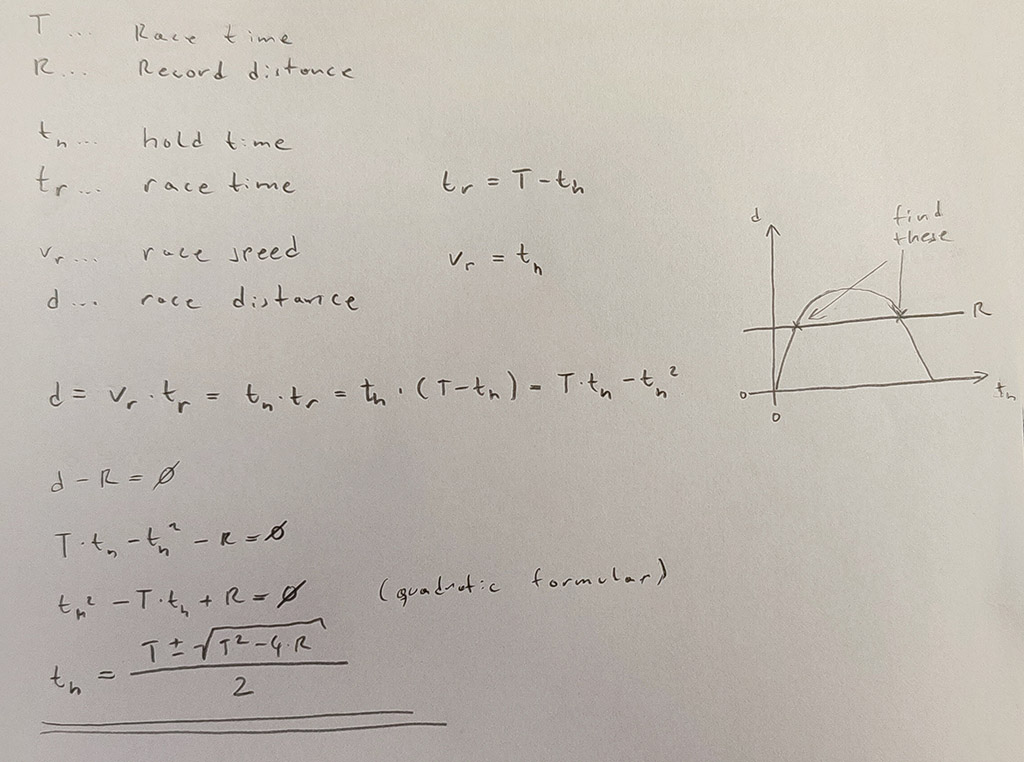 T ... Race time
R ... Record distance
tₕ ... hold time
tᵣ ... race time tᵣ = T - tₕ
vᵣ ... race speed vᵣ = tₕ
d ... race distance
d
find
these
R
0
0
tₕ
d = vᵣ · tᵣ = tₕ · tᵣ = tₕ · (T - tₕ) = T · tₕ - tₕ²
d - R = ∅
T · tₕ - tₕ² - R = ∅
tₕ² - T · tₕ + R = ∅ (quadratic formular)
tₕ = (T ± √(T² - 4 · R)) / 2